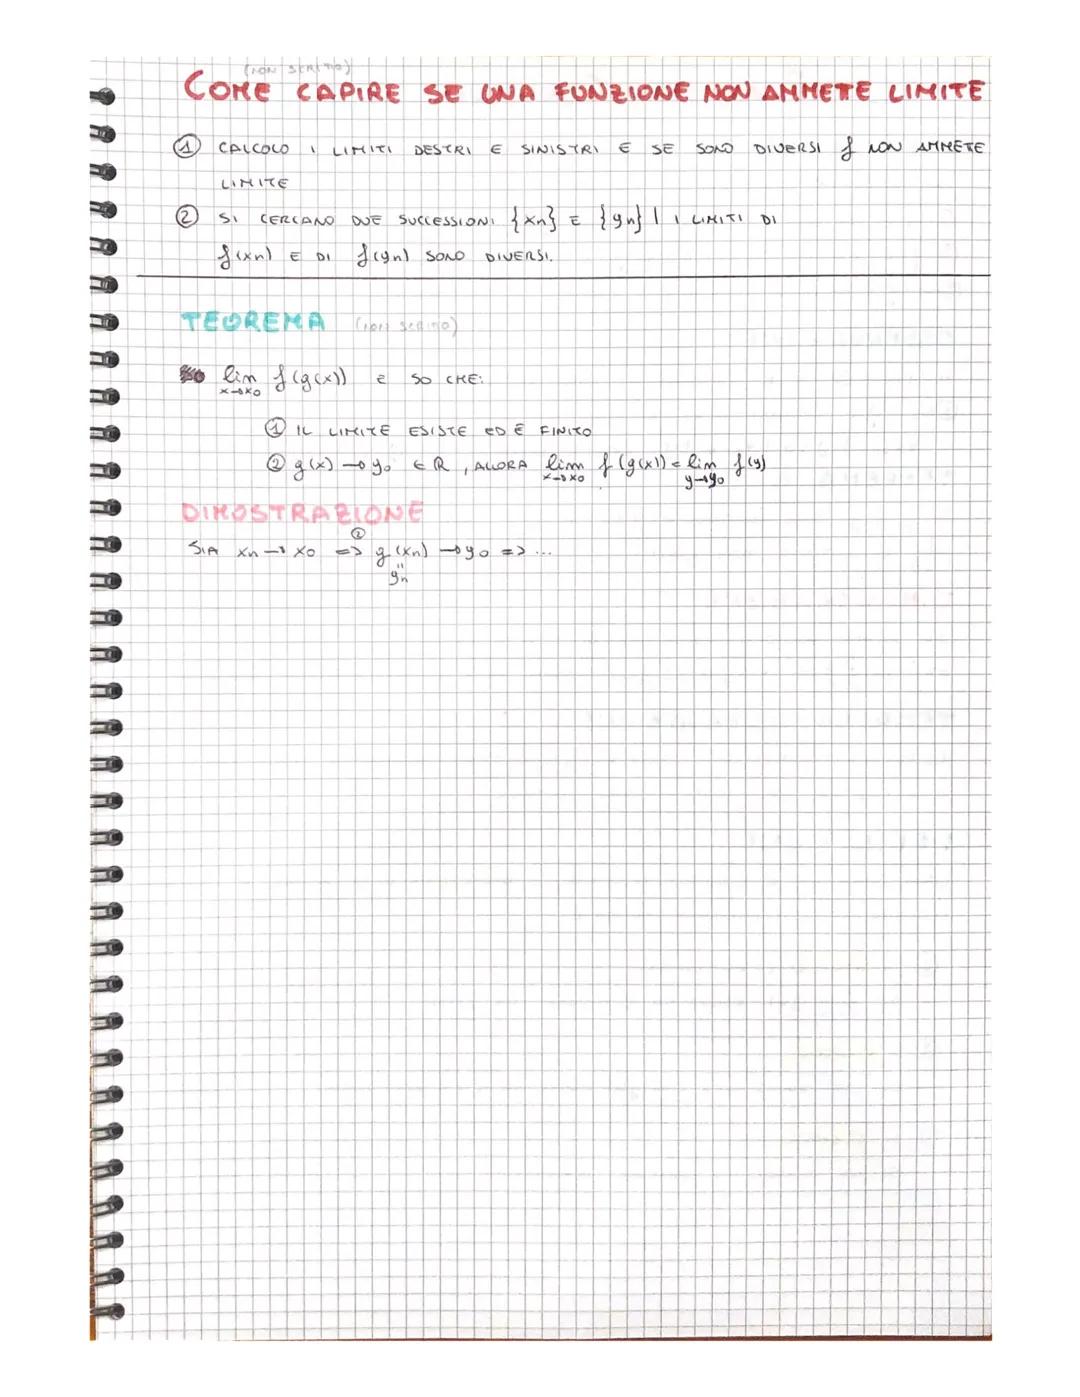 (NON SCRITTO)
COME CAPIRE SE UNA FUNZIONE NON AMMETE LIMITE
① CALCOLO I LIMITI DESTRI E SINISTRI E SE SONO DIVERSI f NON AMMETE
LIMITE
② SI CERCANO DUE SUCCESSIONI {xn} E {yn} | I LIMITI DI
f(xn) E DI f(yn) SONO DIVERSI.
TEOREMA (NON SCRITTO)
lim f(g(x)) E SO CHE:
x→x0
① IL LIMITE ESISTE ED È FINITO
② g(x) → y0 ∈ R, ALLORA lim f(g(x)) = lim f(y)
x→x0 y→y0
DIMOSTRAZIONE
②
SIA xn → x0 => g(xn) → y0 => ...
"
yn